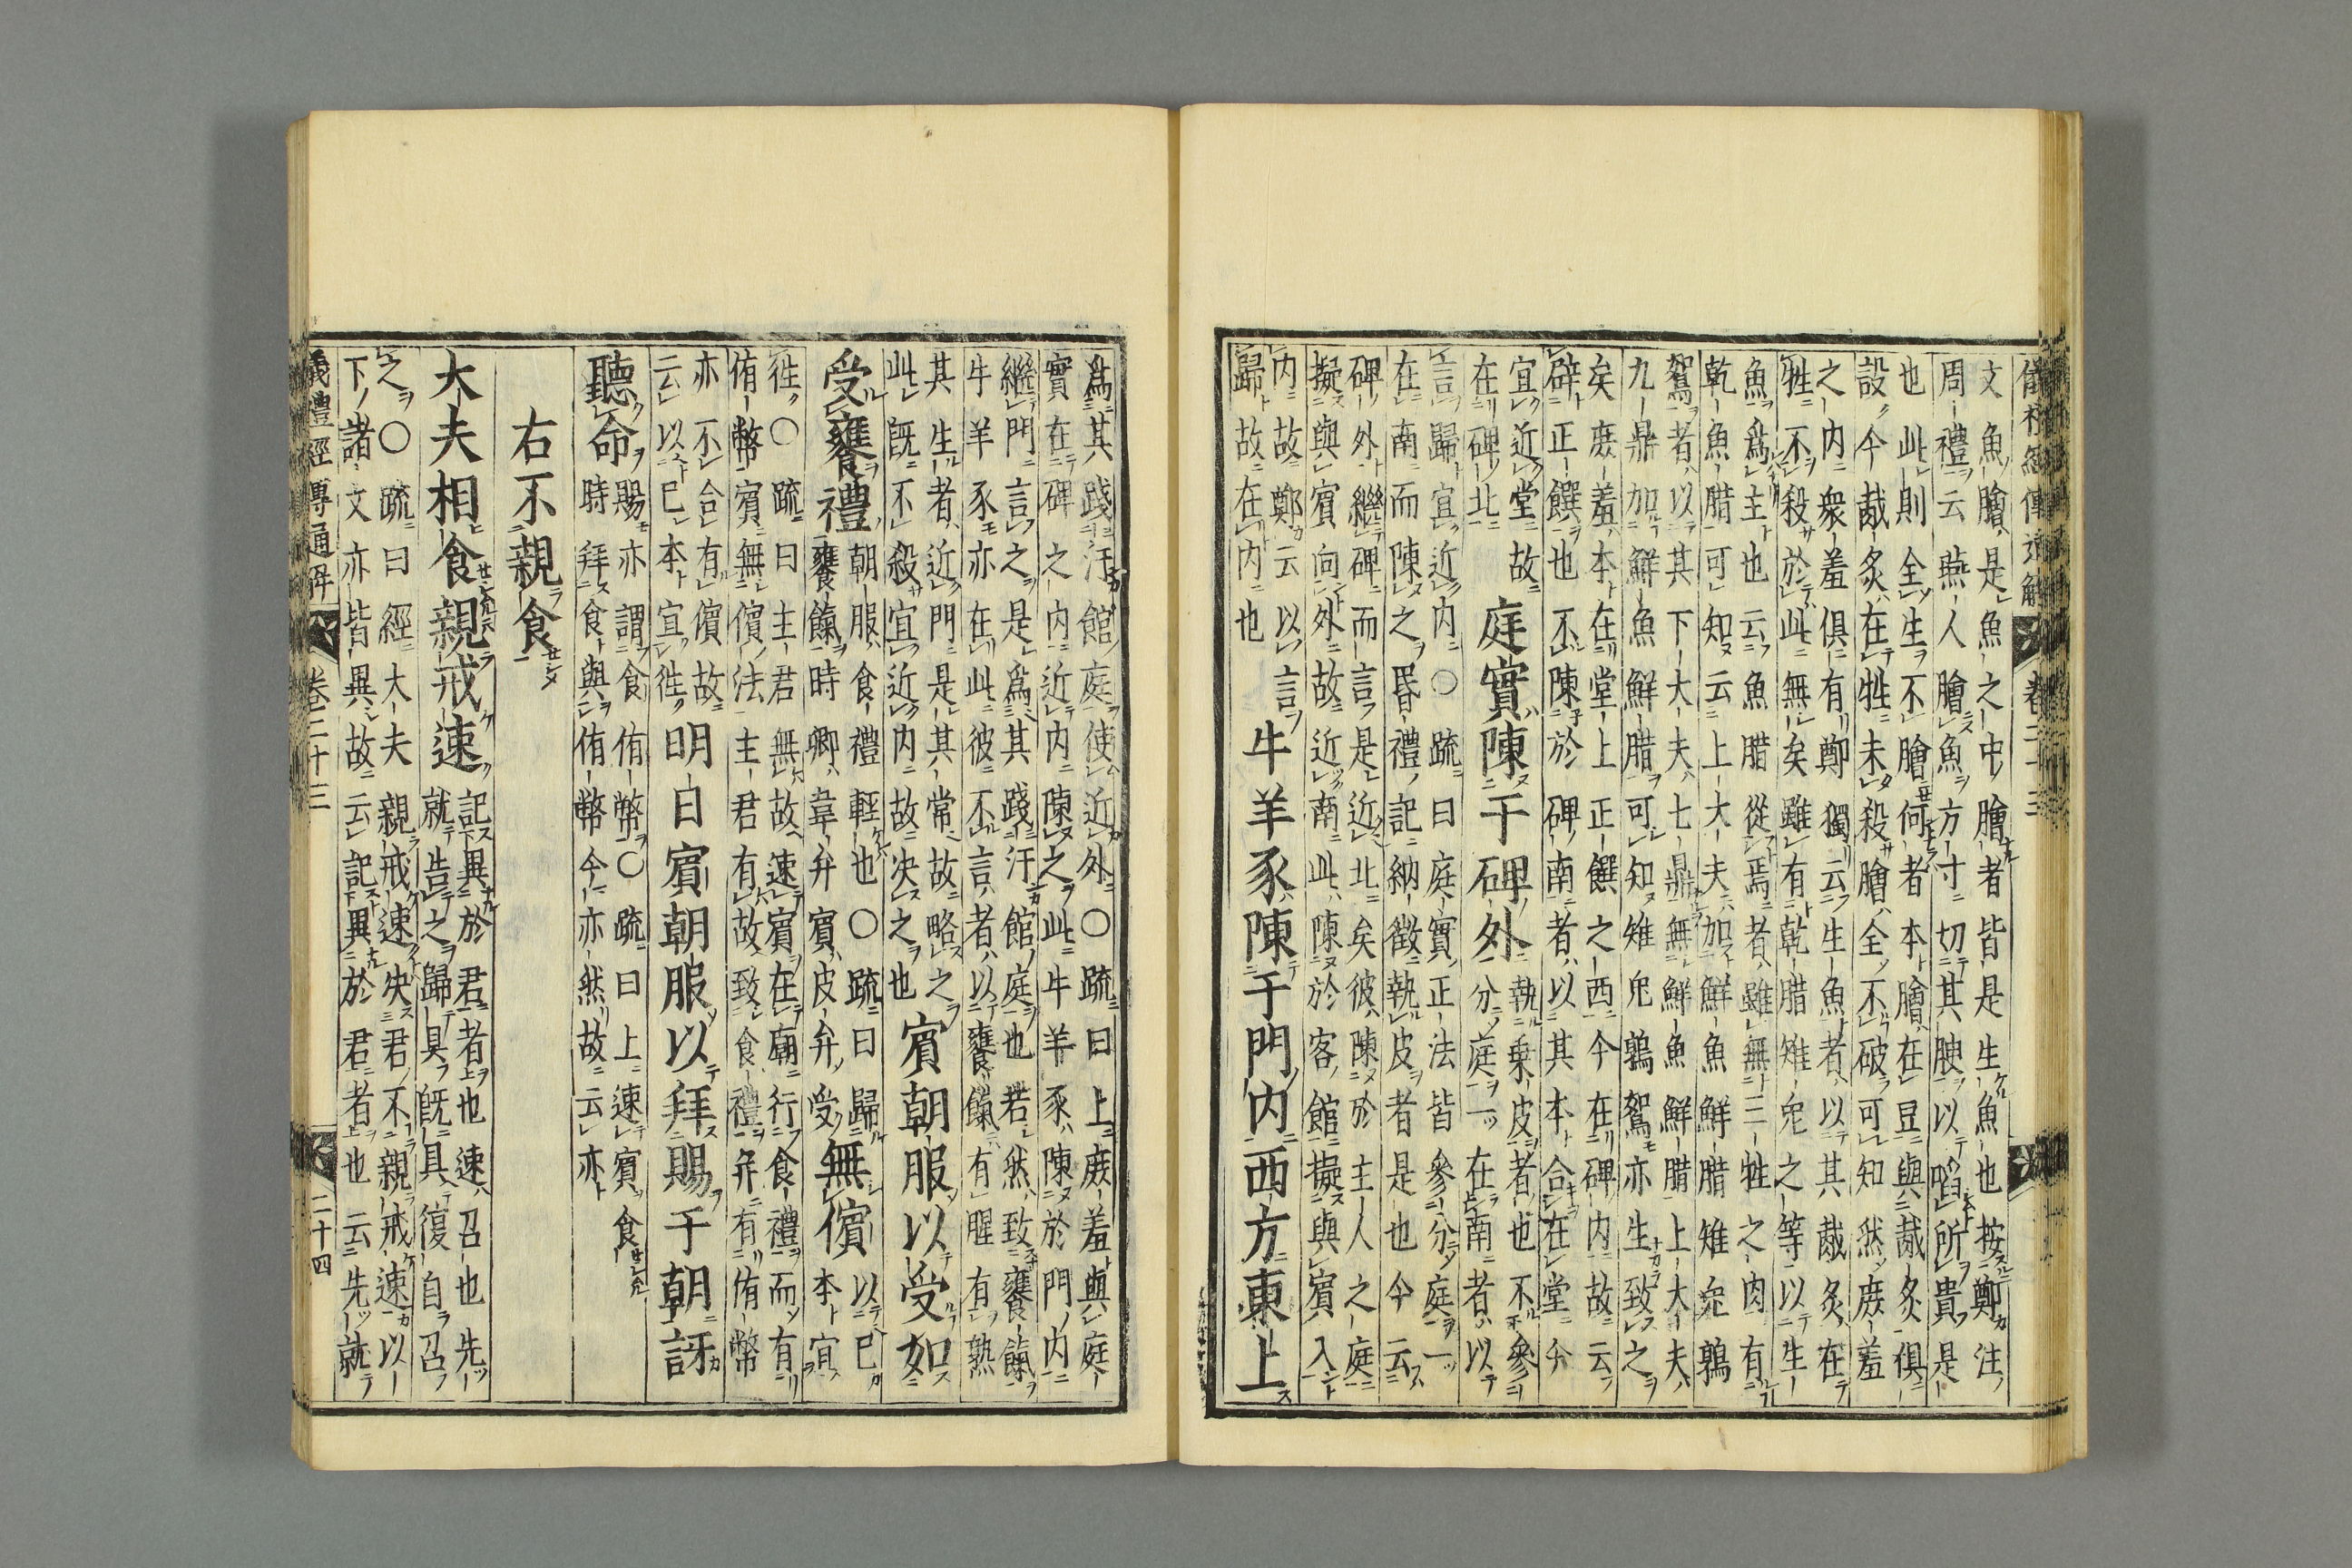 儀禮經傳通解 卷二十三
文魚膾是魚之中膾者皆是生魚也按鄭注
周禮云燕人膾魚方寸切其腴以啗所貴是
也此則全生不膾何者本膾在豆與胾炙俱
設今胾炙在牲未殺膾全不破可知然庶羞
之内衆羞俱有鄭獨云生魚者以其胾炙在
牲不殺於此無矣雖有乾腊雉兔之等以生
魚爲主也云魚腊從焉者雖無三牲之肉有
乾魚腊可知云上大夫加鮮魚鮮腊雉兔鶉
鴽者以其下大夫七鼎無鮮魚鮮腊上大夫
九鼎加鮮魚鮮腊可知雉兔鶉鴽亦生致之
矣庶羞本在堂上正饌之西今在碑内故云
辟正饌也不陳於碑南者以其本合在堂今
宜近堂故
在碑北
庭實陳于碑外
執乗皮者也不參
分庭一在南者以
言歸宜近内〇疏曰庭實正法皆參分庭一
在南而陳之昏禮記納徴執皮者是也今云
碑外繼碑而言是近北矣彼陳於主人之庭
擬與賓向外故近南此陳於客館擬與賓入
内故鄭云以言
歸故在内也
牛羊豕陳于門内西方東上
爲其踐汙館庭使近外〇疏曰上庶羞與庭
實在碑之内近内陳之此牛羊豕陳於門内
繼門言之是爲其踐汙館庭也若然致饔餼
牛羊豕亦在此彼不言者以饔餼有腥有熟
其生者近門是其常故略之
此既不殺宜近内故决之也
賓朝服以受如
受饔禮
朝服食禮輕也〇疏曰歸
饔餼時卿韋弁賓皮弁受
無儐
以已
本宜
徃〇疏曰主君無故速賓在廟行食禮而有
侑幣賓無儐法主君有故致食禮并有侑幣
亦不合有儐故
云以已本宜徃
明日賓朝服以拜賜于朝訝
聽命
賜亦謂食侑幣〇疏曰上速賓食
時拜食與侑幣今亦然故云亦
右不親食
大夫相食親戒速
記異於君者也速召也先
就告之歸具既具復自召
之〇疏曰經大夫親戒速决君不親戒速以
下諸文亦皆異故云記異於君者也云先就
儀禮經傳通解 卷二十三 二十四